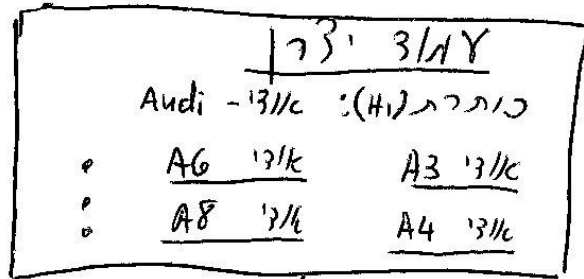 עמוד יצרן
כותרת (H1): אודי - Audi
אודי A3 אודי A6
אודי A4 אודי A8